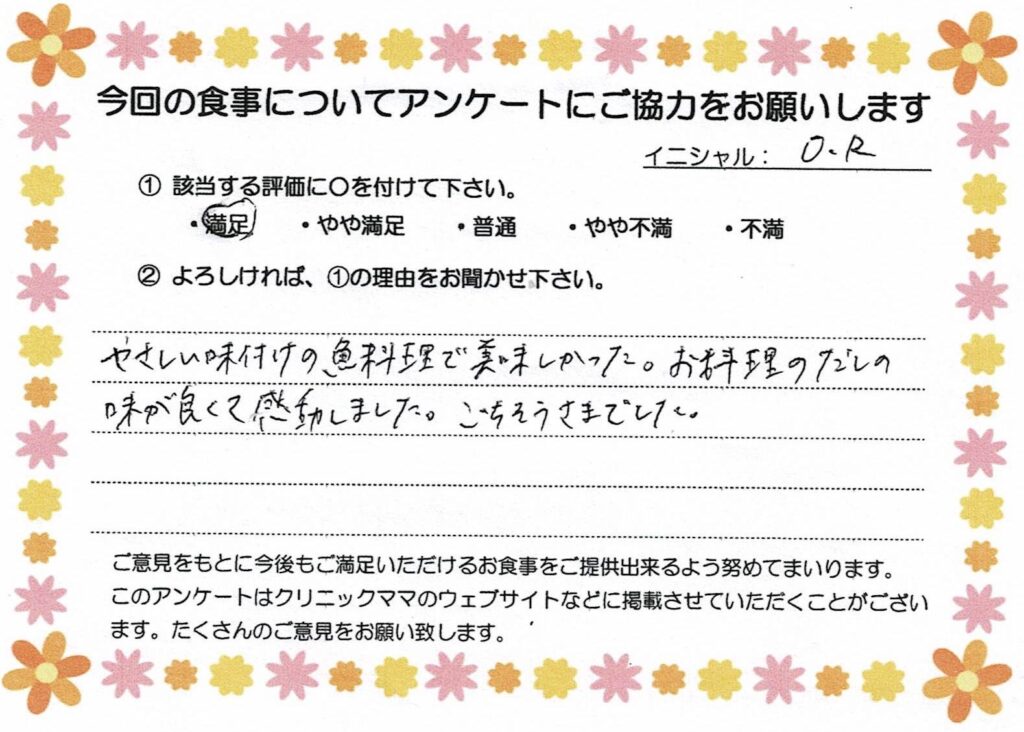 今回の食事についてアンケートにご協力をお願いします
イニシャル： O.R
① 該当する評価に〇を付けて下さい。
・満足　・やや満足　・普通　・やや不満　・不満
② よろしければ、①の理由をお聞かせ下さい。
やさしい味付けの魚料理で美味しかった。お料理のだしの
味が良くて感動しました。ごちそうさまでした。
ご意見をもとに今後もご満足いただけるお食事をご提供出来るよう努めてまいります。
このアンケートはクリニックママのウェブサイトなどに掲載させていただくことがござい
ます。たくさんのご意見をお願い致します。